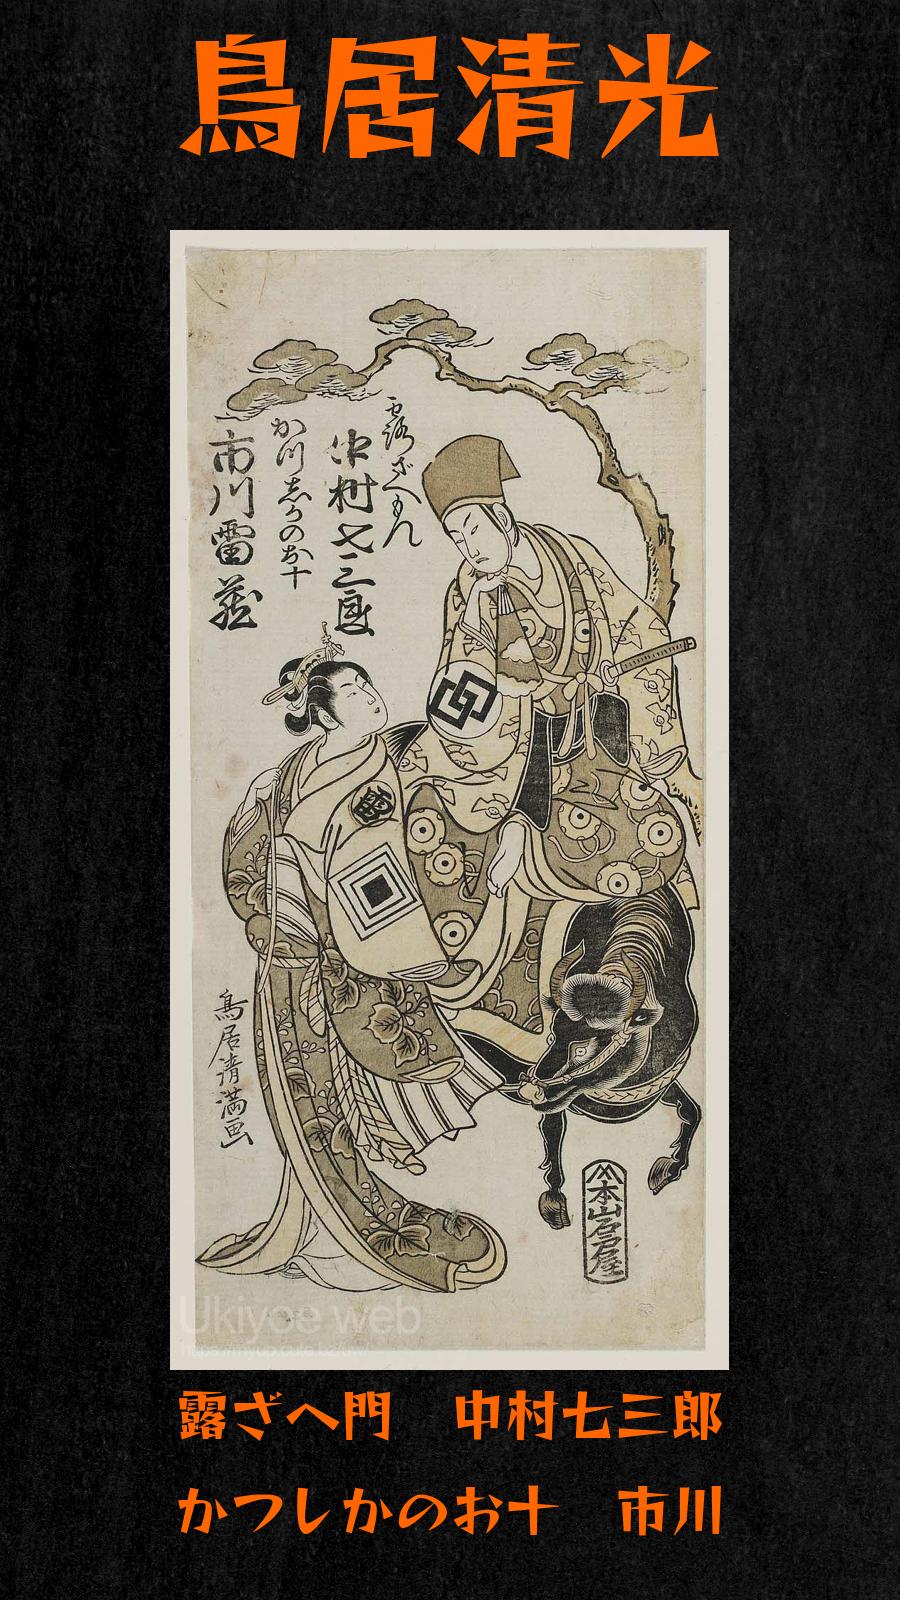 鳥居清光
露ざへもん
中村七三郎
かつしかのお十
市川雷蔵
雷
鳥居清満画
本山石屋
Ukiyoe web
露ざへ門　中村七三郎
かつしかのお十　市川